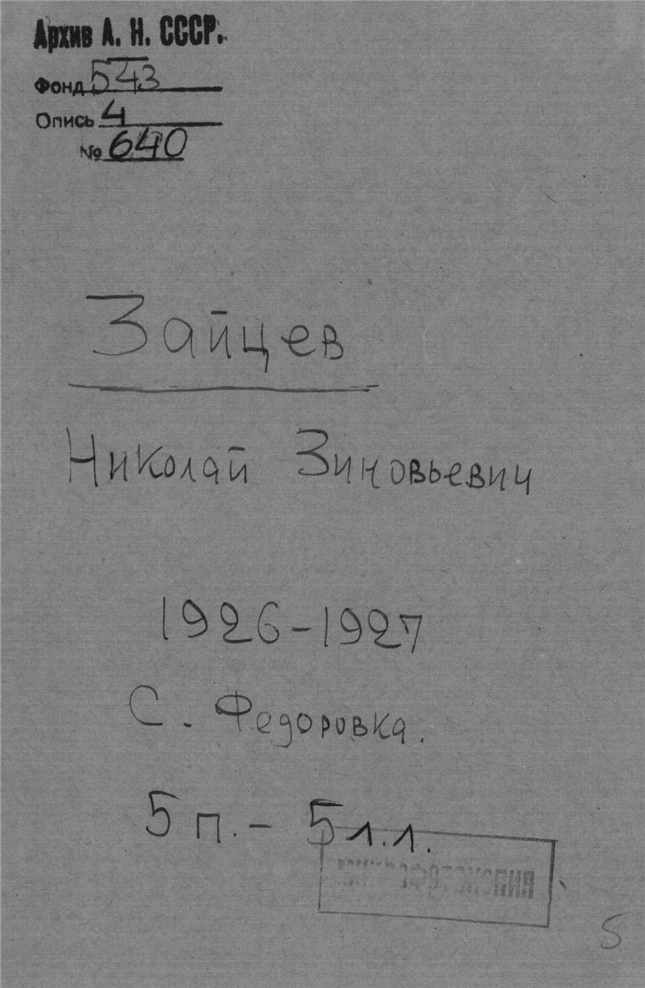 Архив А. Н. СССР.
Фонд 543
Опись 4
№ 640
Зайцев
Николай Зиновьевич
1926-1927
С. Федоровка.
5 п. - 5 л.л.
5